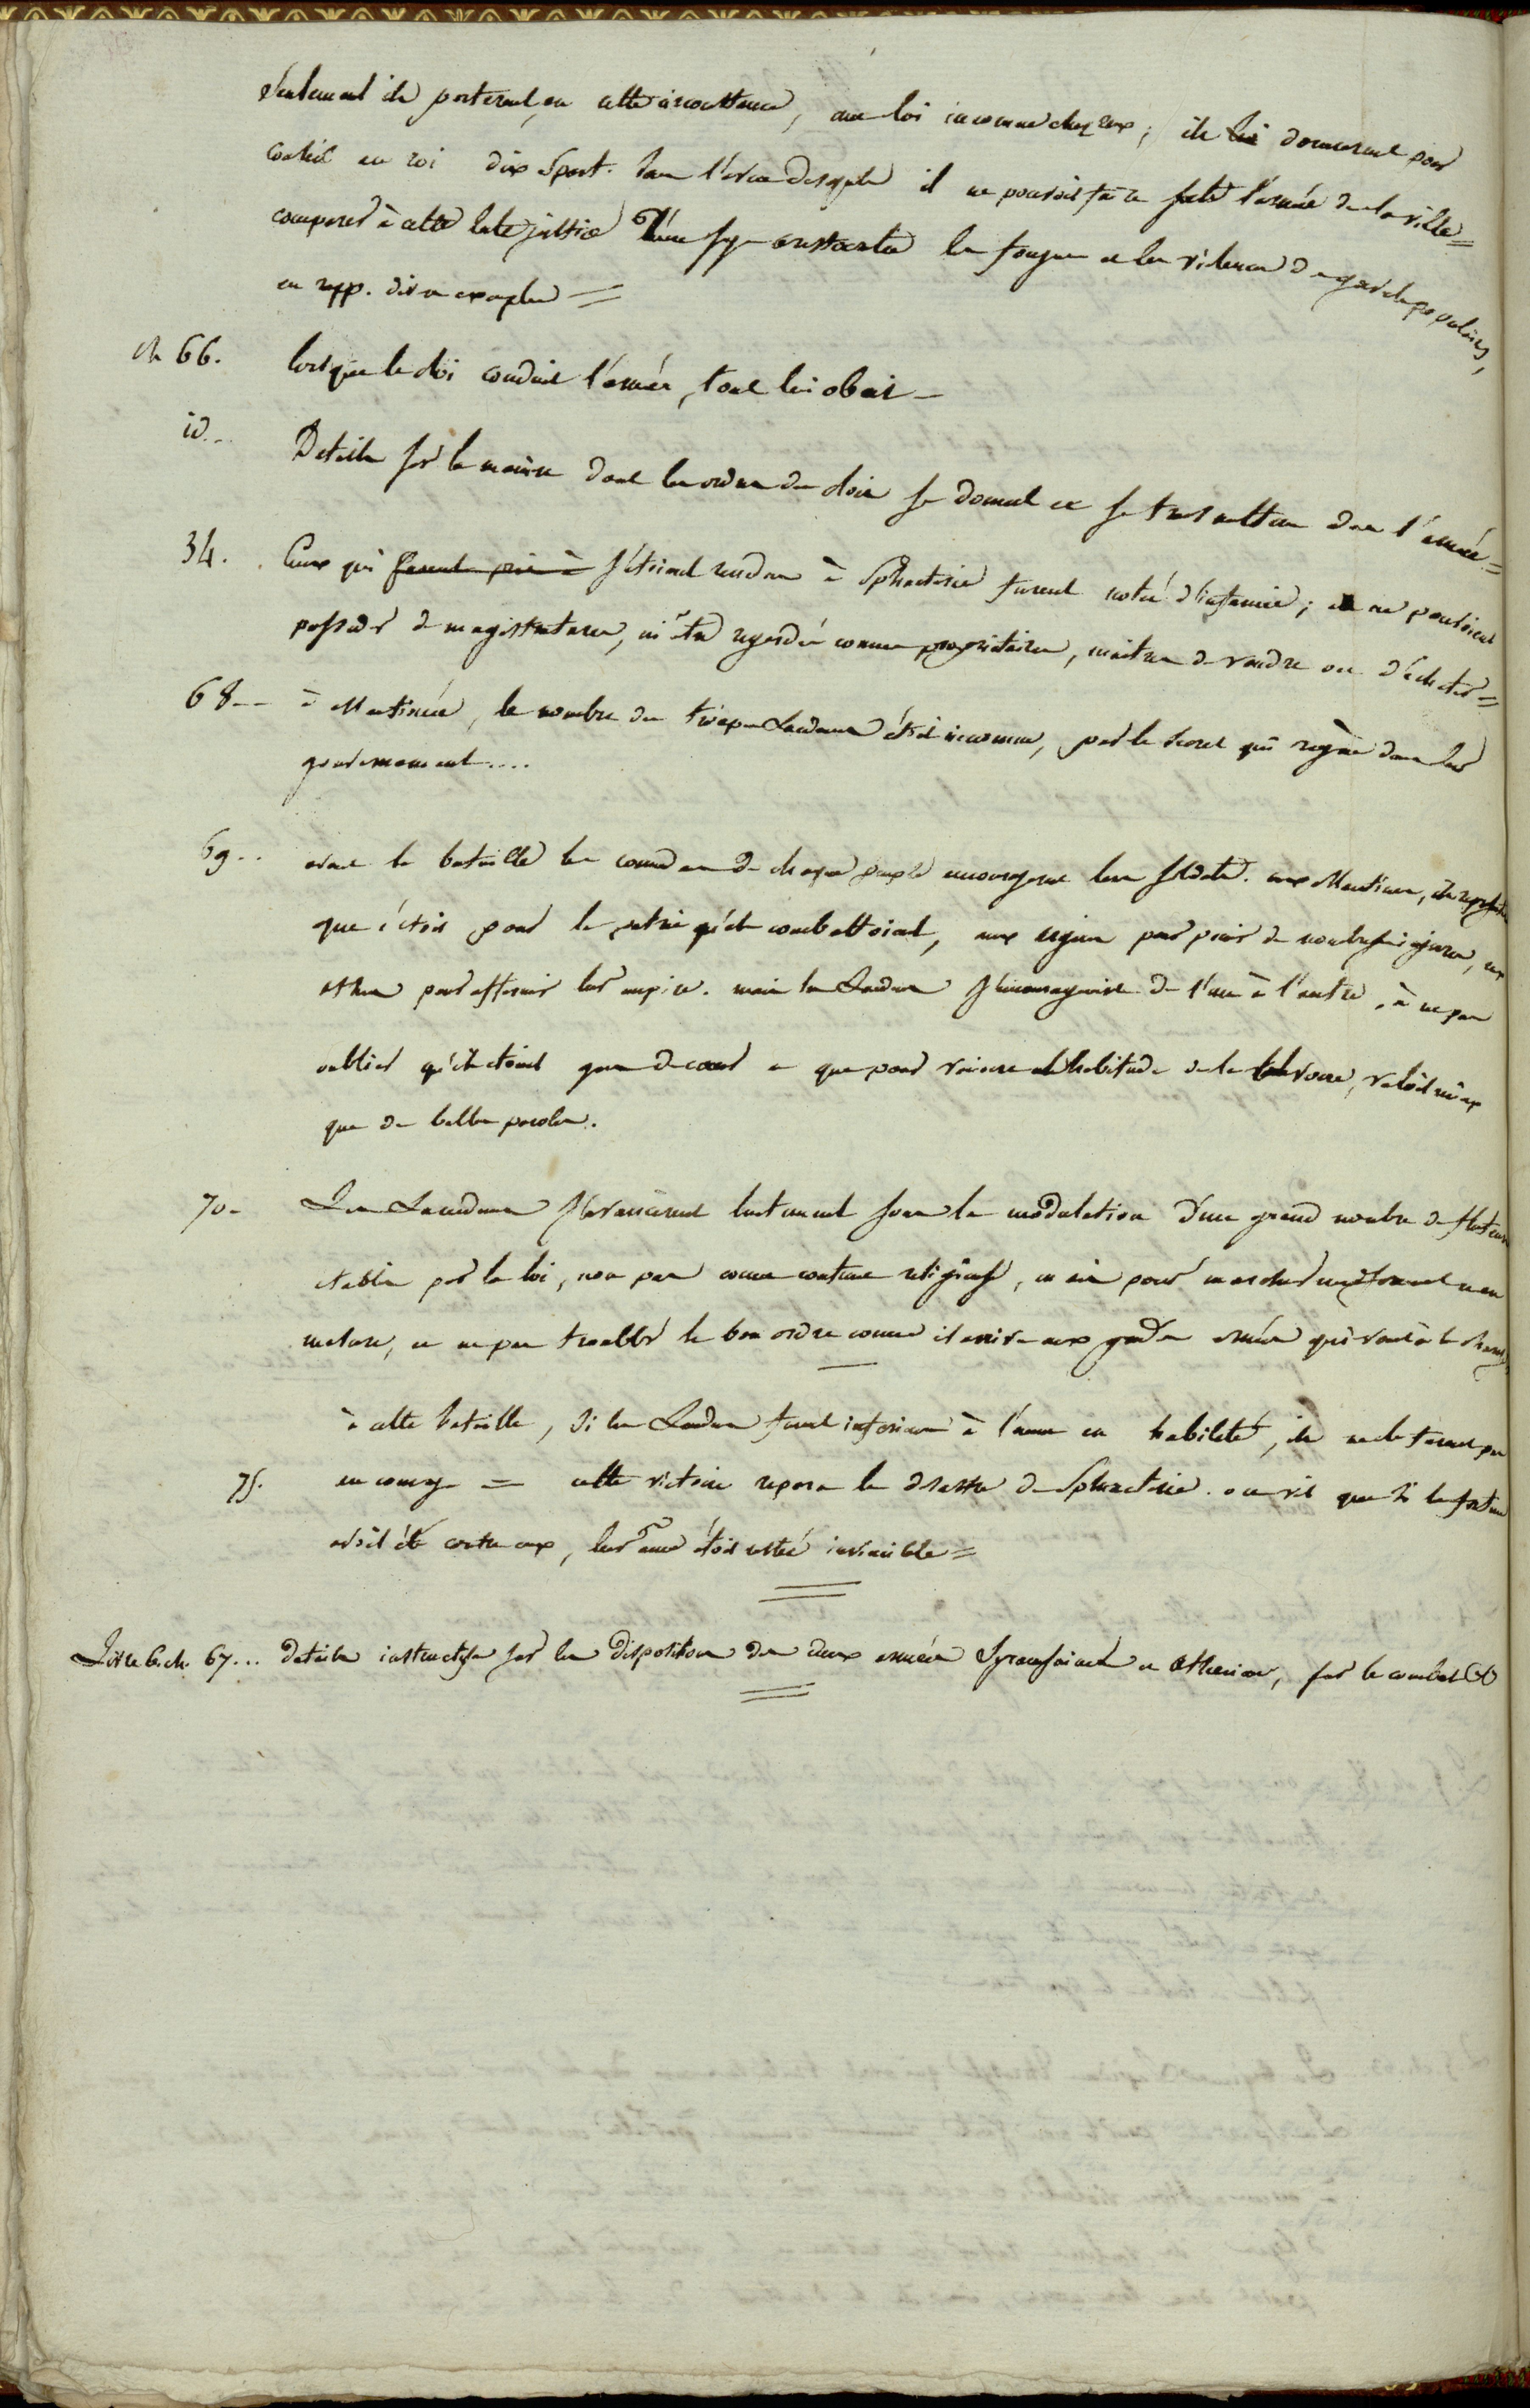 seulement ils porterent, en cette circonstance, une loi inconnue chez eux; ils lui donnerent pour
conseil au roi dix Spart. sans l'avis desquels il ne pouvoit faire sortir l'armée de la ville =
comparer à cette lente justice d'un sage aristocratie la fougue et les violences du gouv. populaires,
en rapp. divers exemples =
ch 66. lorsque le Roi conduit l'armée, tout lui obeit —
id.. Details sur la maniere dont les ordres du Roi se donnent et se transmettent dans l'armée. =
34. Ceux qui furent pris à s'étoient rendus à Sphacterie furent notés d'infamie; ils ne pouvoient
posseder de magistratures, ni être regardés comme proprietaires, maitres de vendre ou d'acheter =
68-- à Mantinée, le nombre des troupes Laced. étoit inconnu, par le secret qui regne dans leur
gouvernement....
69.. avant la bataille les command. de chaque peuple encouragerent leurs soldats. aux Mantinéens, ils
que c'étoit pour la patrie qu'ils combattoient, aux argiens pour punir de nombreuses injures, aux
Athen. pour affermir leur empire. mais les Laced. s'encourageoient de l'un à l'autre, à ne pas
oublier qu'ils etoient gens de coeur et que pour vaincre l'habitude de la valoit mieux
que de belles paroles.
70- Les Lacedem. s'avancerent lentement sous la modulation d'un grand nombre de fluteurs
etablis par la loi, non pas comme coutume religieuse, mais pour marcher uniformement en
mesure, et ne pas troubler le bon ordre comme il arrive aux grandes armées qui vont à la charge,
à cette bataille, si les Laced. furent inferieurs à l'ennemi en habileté, ils ne le furent pas
75. en courage = cette victoire repara le desastre de Sphacterie. on vit que si la fortune
avoit été contre eux, leur ame étoit restée invincible =
Livre 6. ch. 67... details instructifs sur les dispositions des deux armées Syracusaine et Athenienne, sur le combat &